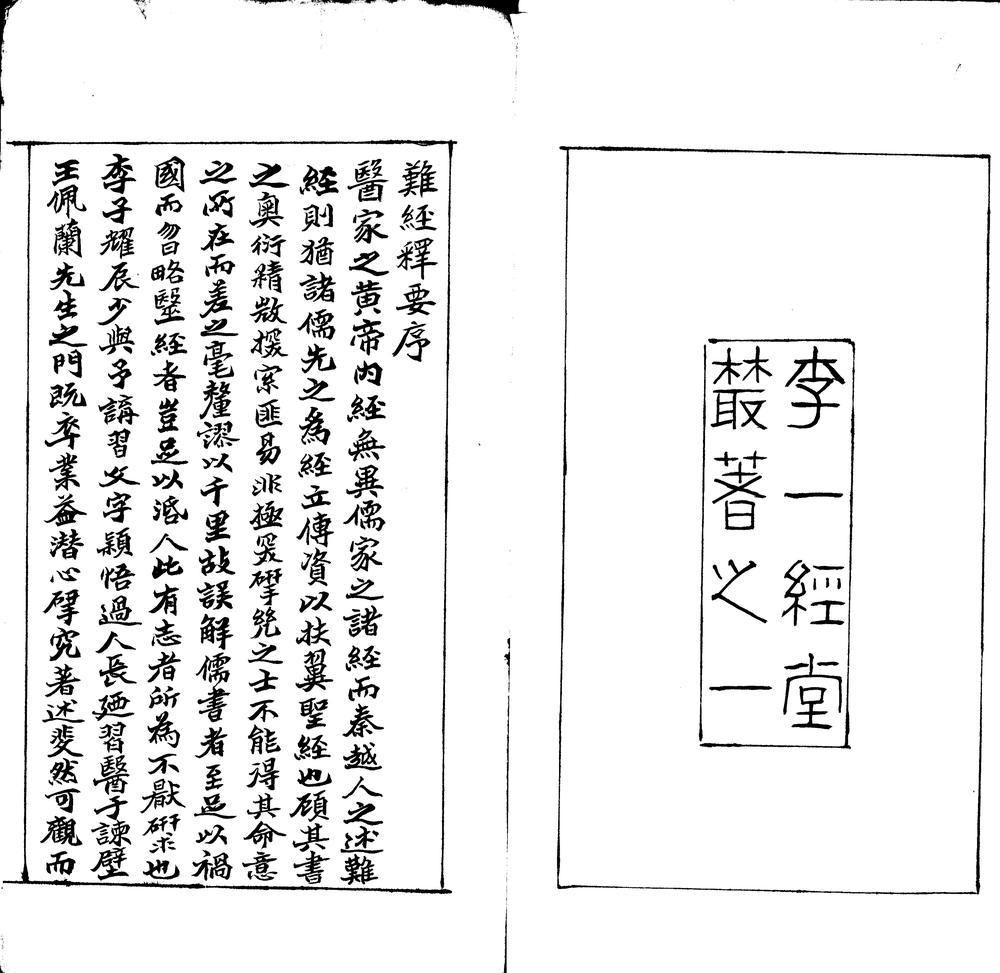 李一經堂
叢著之一
難經釋要序
醫家之黃帝內經無異儒家之諸經而秦越人之述難
經則猶諸儒先之為經立傳資以扶翼聖經也顧其書
之奧衍精微探索匪易非極深硏究之士不能得其命意
之所在而差之毫釐謬以千里故誤解儒書者至足以禍
國而曶略毉經者豈足以活人此有志者所為不厭硏求也
李子耀辰少與予講習文字穎悟過人長迺習醫于諫壁
王佩蘭先生之門既卒業益潛心硏究著述斐然可觀而